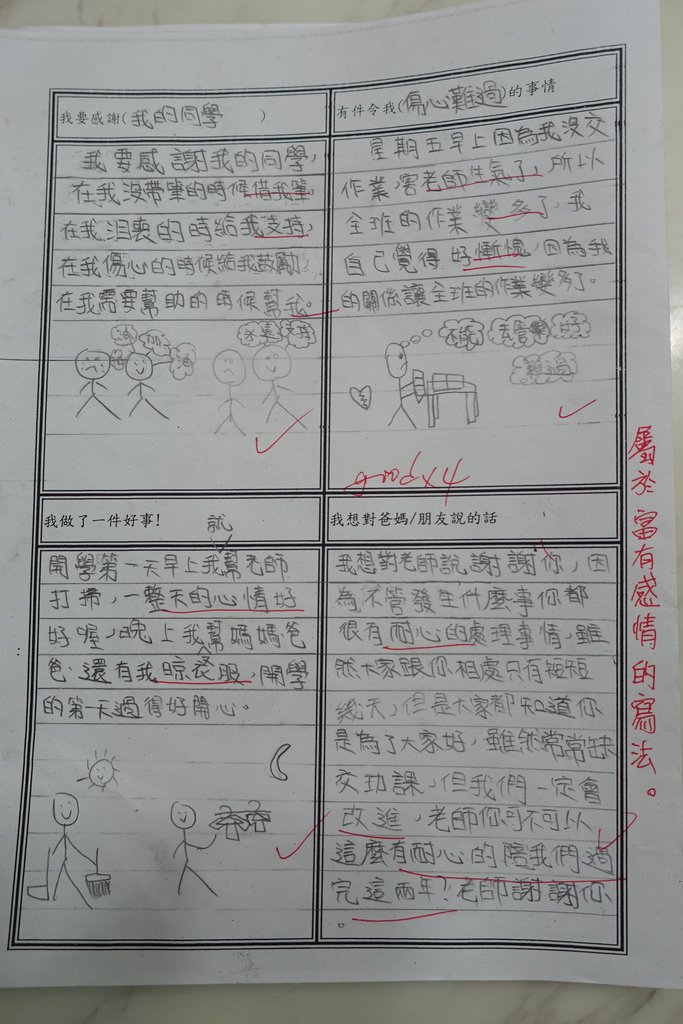 我要感謝(我的同學)
我要感謝我的同學,
在我沒帶筆的時候借我筆,
在我沮喪的時給我支持,
在我傷心的時候給我鼓勵,
在我需要幫助的時候幫我。
油
加
油
永遠支持
有件令我(傷心難過)的事情
星期五早上因為我沒交
作業,害老師生氣了,所以
全班的作業變多了,我
自己覺得好慚愧,因為我
的關係讓全班的作業變多了。
難過
good x4
我做了一件好事!
就
開學第一天早上我幫老師
打掃,一整天的心情好
好喔,晚上我幫媽媽爸
爸還有我晾衣服,開學
的第一天過得好開心。
我想對爸媽/朋友說的話
我想對老師說謝謝你,因
為不管發生什麼事你都
很有耐心的處理事情,雖
然大家跟你相處只有短短
幾天,但是大家都知道你
是為了大家好,雖然常常缺
交功課,但我們一定會
改進,老師你可不可以
這麼有耐心的陪我們過
完這兩年?老師謝謝你
。
屬於富有感情的寫法。